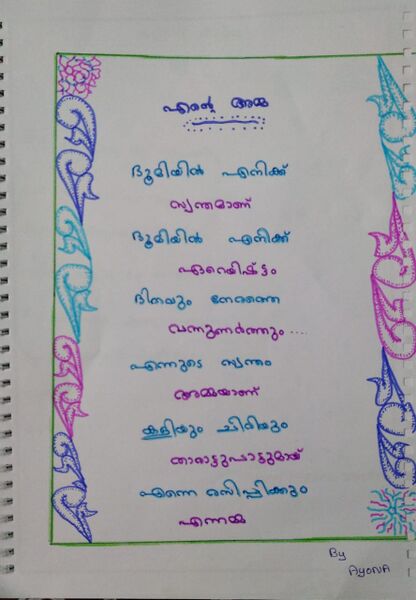 എന്റെ അമ്മ
ഭൂമിയിൽ എനിക്ക്
സ്വന്തമാണ്
ഭൂമിയിൽ എനിക്ക്
ഏറെയിഷ്ടം
ദിനവും നേരത്തെ
വന്നുണർത്തും ....
എന്നുടെ സ്വന്തം
അമ്മയാണ്
കളിയും ചിരിയും
താരാട്ടുപാട്ടുമായ്
എന്നെ രസിപ്പിക്കും
എന്നമ്മ
By
AYONA